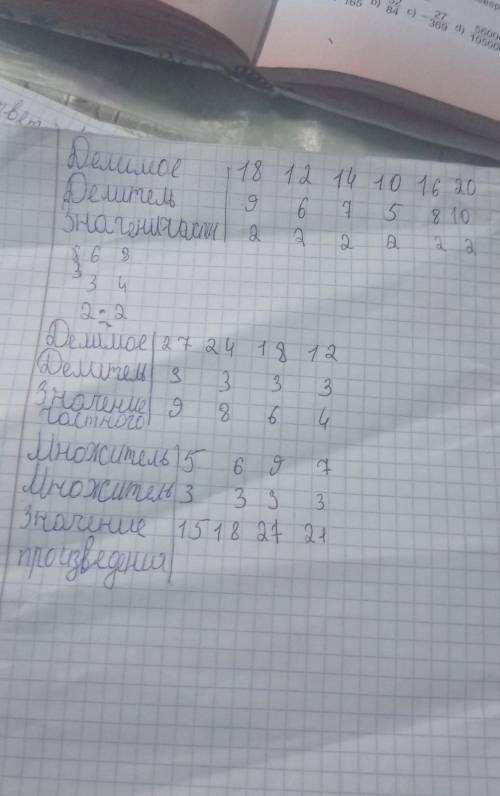 165 b) 84 c) - 27/369 d)
твет
Делимое 18 12 14 10 16 20
Делитель 9 6 7 5 8 10
Значен частн 2 2 2 2 2 2
6 8
3 4
2 = 2
Делимое 27 24 18 12
Делитель 3 3 3 3
Значение 9 8 6 4
частного
Множитель 5 6 9 7
Множитель 3 3 3 3
Значение 15 18 27 21
произведения